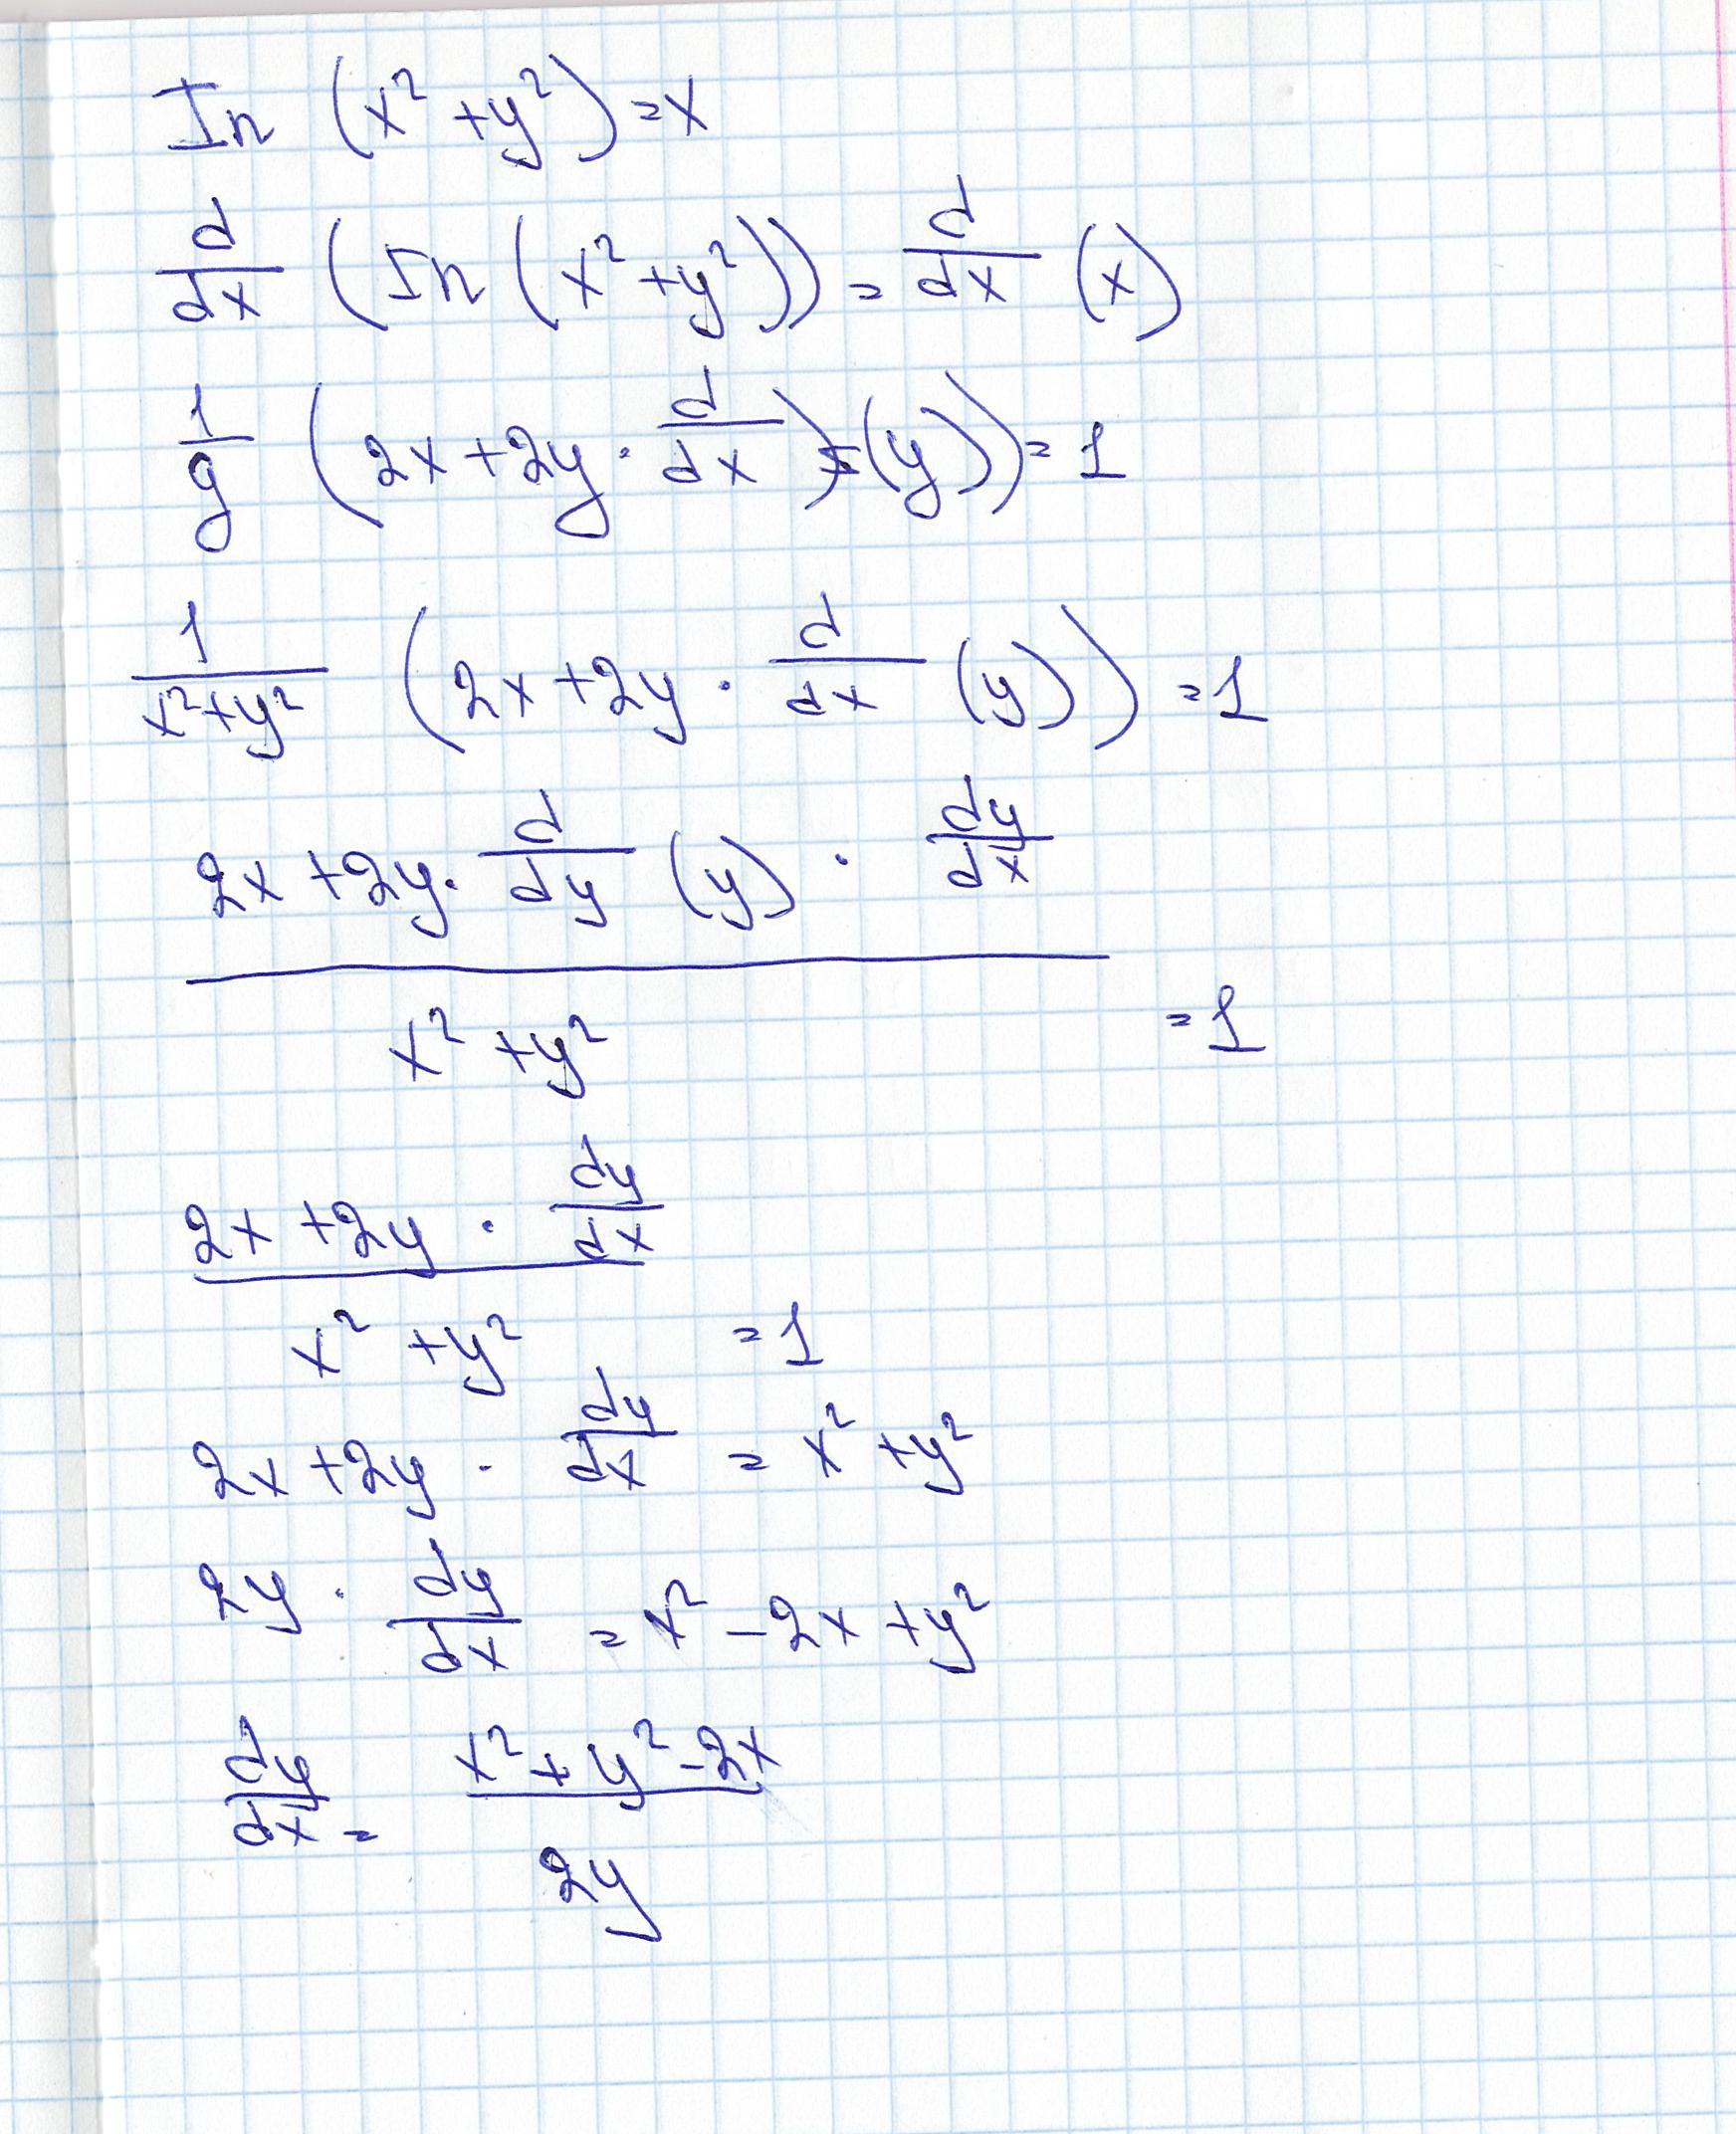 In (x² + y²) = x
d/dx (In (x² + y²)) = d/dx (x)
1/g (2x + 2y · d/dx (y)) = 1
1/(x² + y²) (2x + 2y · d/dx (y)) = 1
(2x + 2y · d/dy (y) · dy/dx)/(x² + y²) = 1
(2x + 2y · dy/dx)/(x² + y²) = 1
2x + 2y · dy/dx = x² + y²
2y · dy/dx = x² - 2x + y²
dy/dx = (x² + y² - 2x)/2y